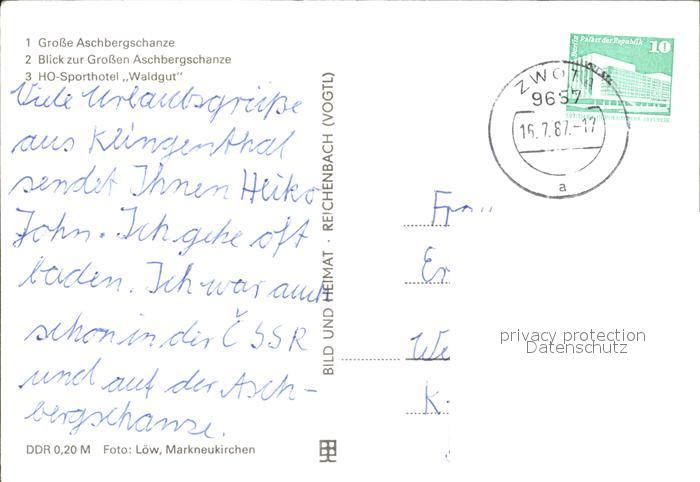 1 Große Aschbergschanze
2 Blick zur Großen Aschbergschanze
3 HO-Sporthotel „Waldgut"
Viele Urlaubsgrüße
aus Klingenthal
sendet Ihnen Heiko
John. Ich gehe oft
baden. Ich war auch
schon in der ČSSR
und auf der Asch-
bergschanze.
DDR 0,20 M Foto: Löw, Markneukirchen
BILD UND HEIMAT · REICHENBACH (VOGTL)
Palast der Republik 10
ZWOTA
9657
16.7.87.-17
a
privacy protection
Datenschutz